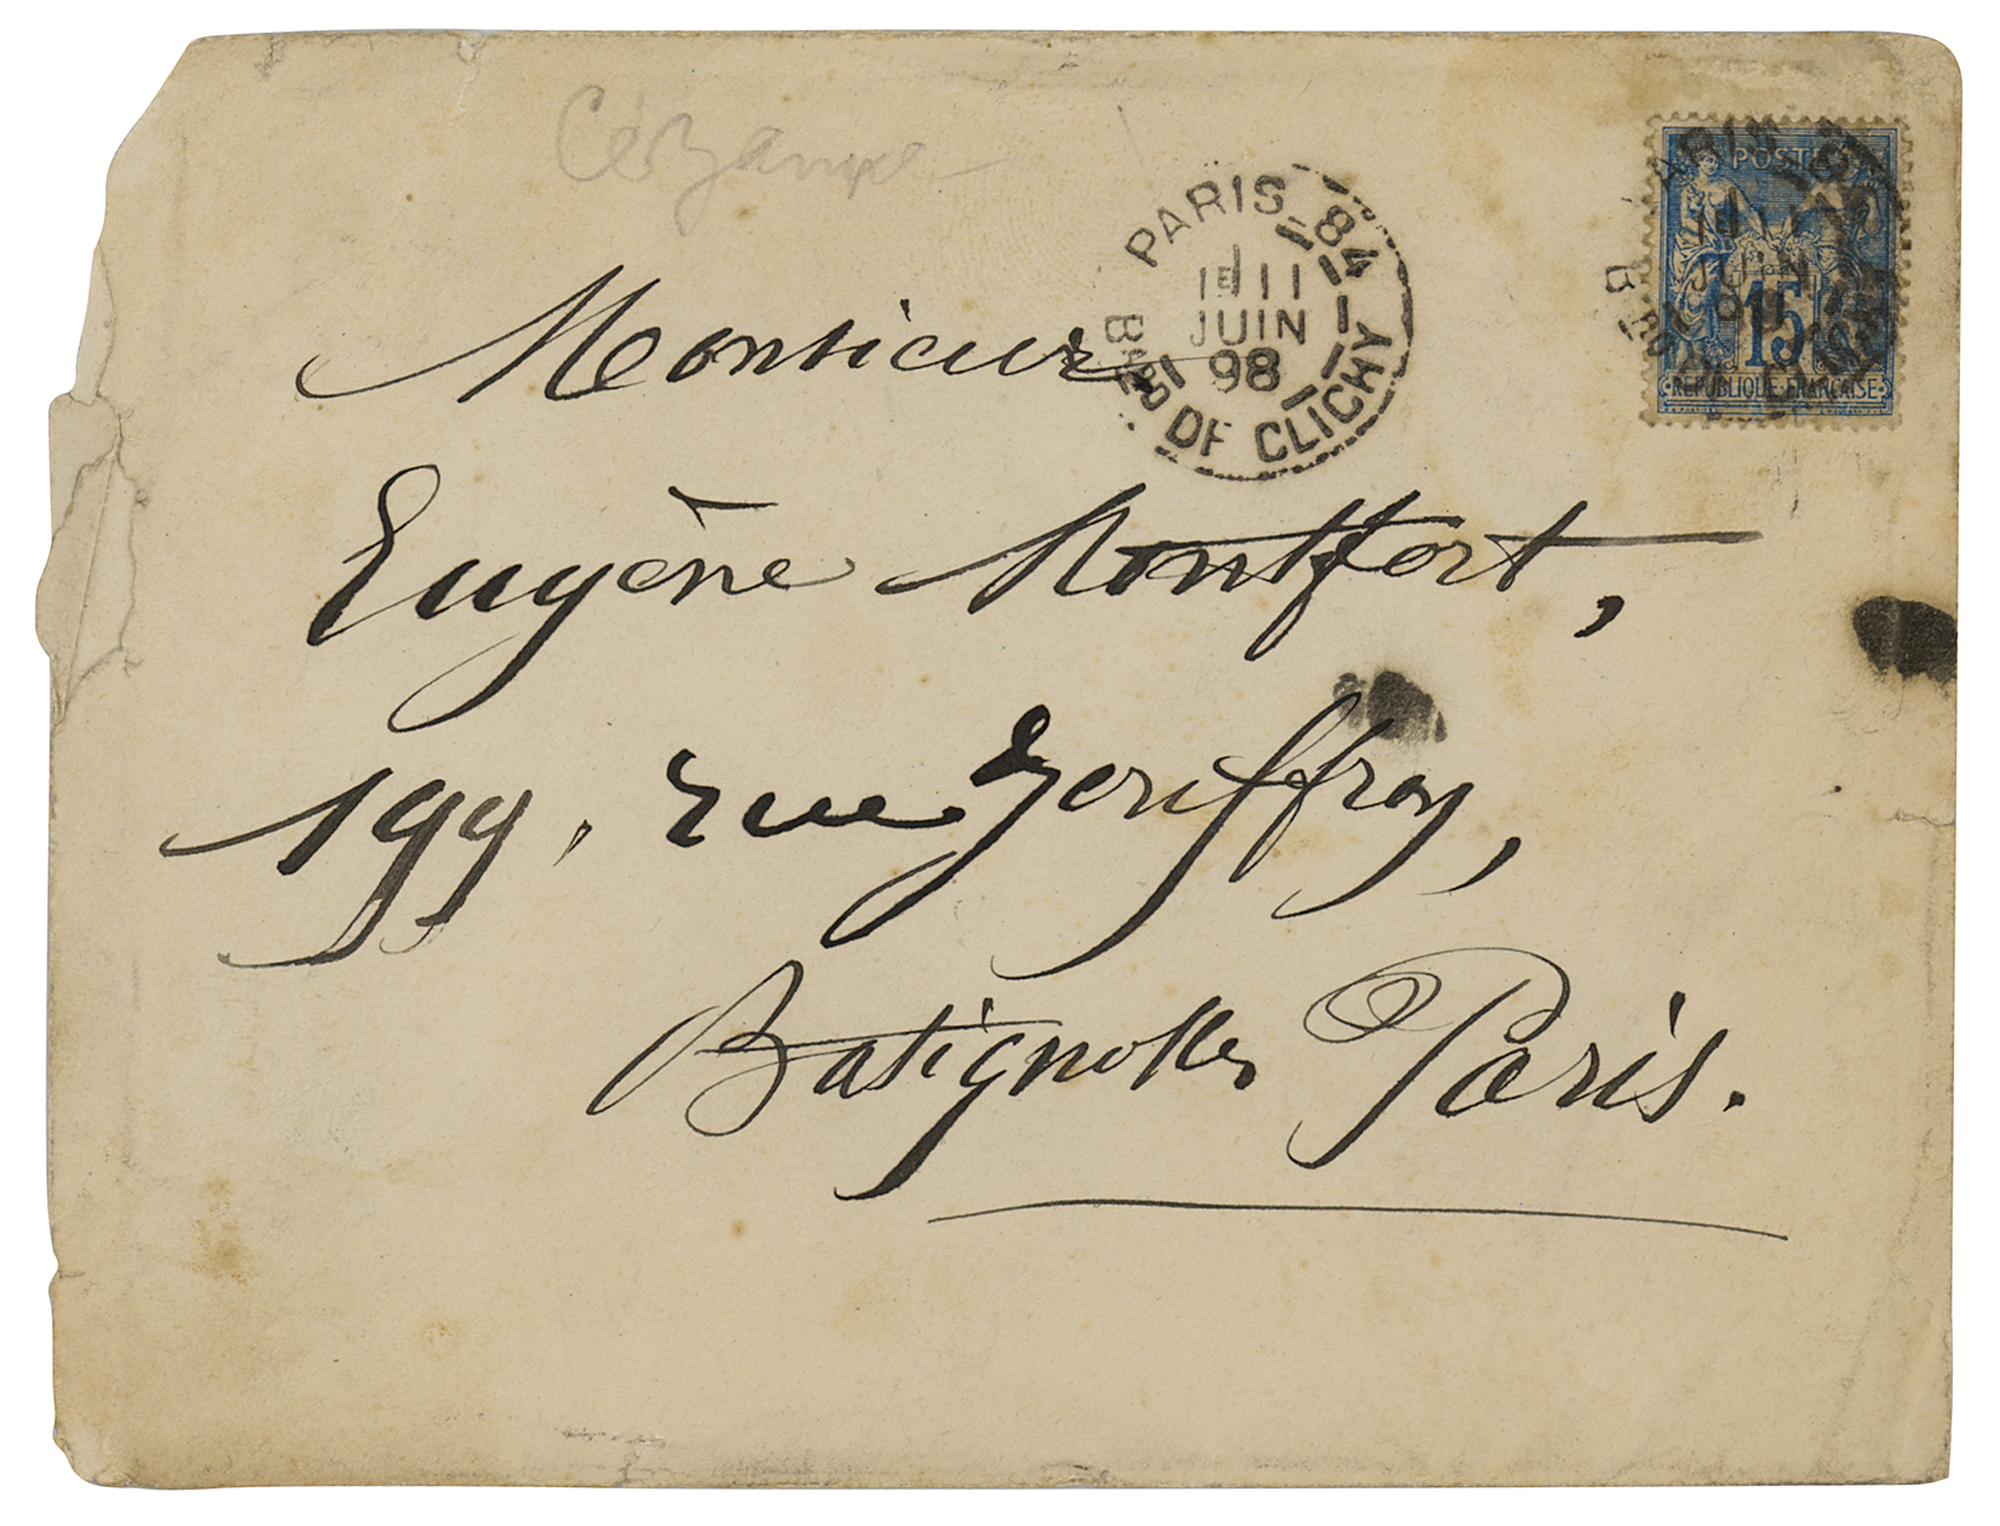 Cézanne
PARIS 84
1E 11
JUIN
98
BARD DE CLICHY
POSTES
JUIN
15
REPUBLIQUE FRANÇAISE
Monsieur
Eugène Montfort,
199, rue Geouffroy,
Batignolles Paris.